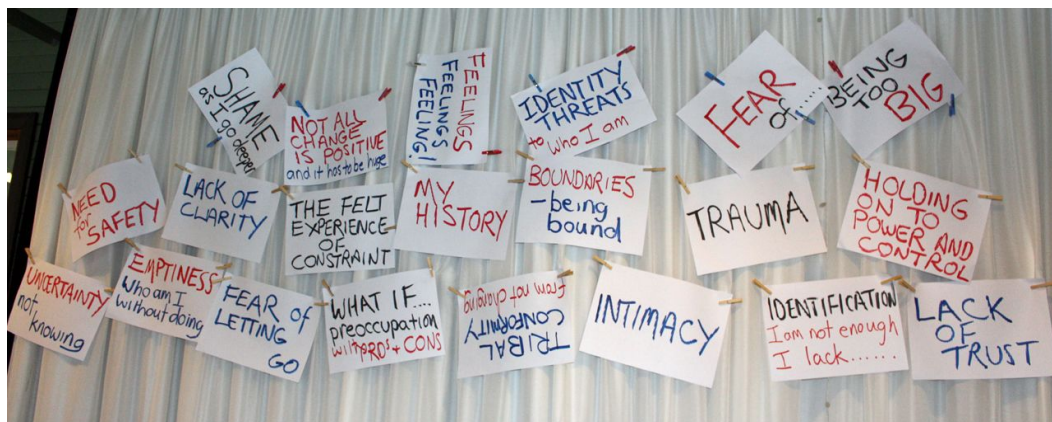 SHAME
as I go deeper
NOT ALL
CHANGE
IS POSITIVE
and it has to be huge
FEELINGS
FEELINGS
FEELING!
IDENTITY
THREATS
to who I am
FEAR
of.....
BEING
TOO
BIG
NEED
for
SAFETY
LACK OF
CLARITY
THE FELT
EXPERIENCE
OF
CONSTRAINT
MY
HISTORY
BOUNDARIES
-being
bound
TRAUMA
HOLDING
ON TO
POWER AND
CONTROL
UNCERTAINTY
not
knowing
EMPTINESS
Who am I
without doing
FEAR of
LETTING
GO
WHAT IF...
preoccupation
with PROs + CONS
TRIBAL
CONFORMITY
from not changing
INTIMACY
IDENTIFICATION
I am not enough
I lack......
LACK
OF
TRUST